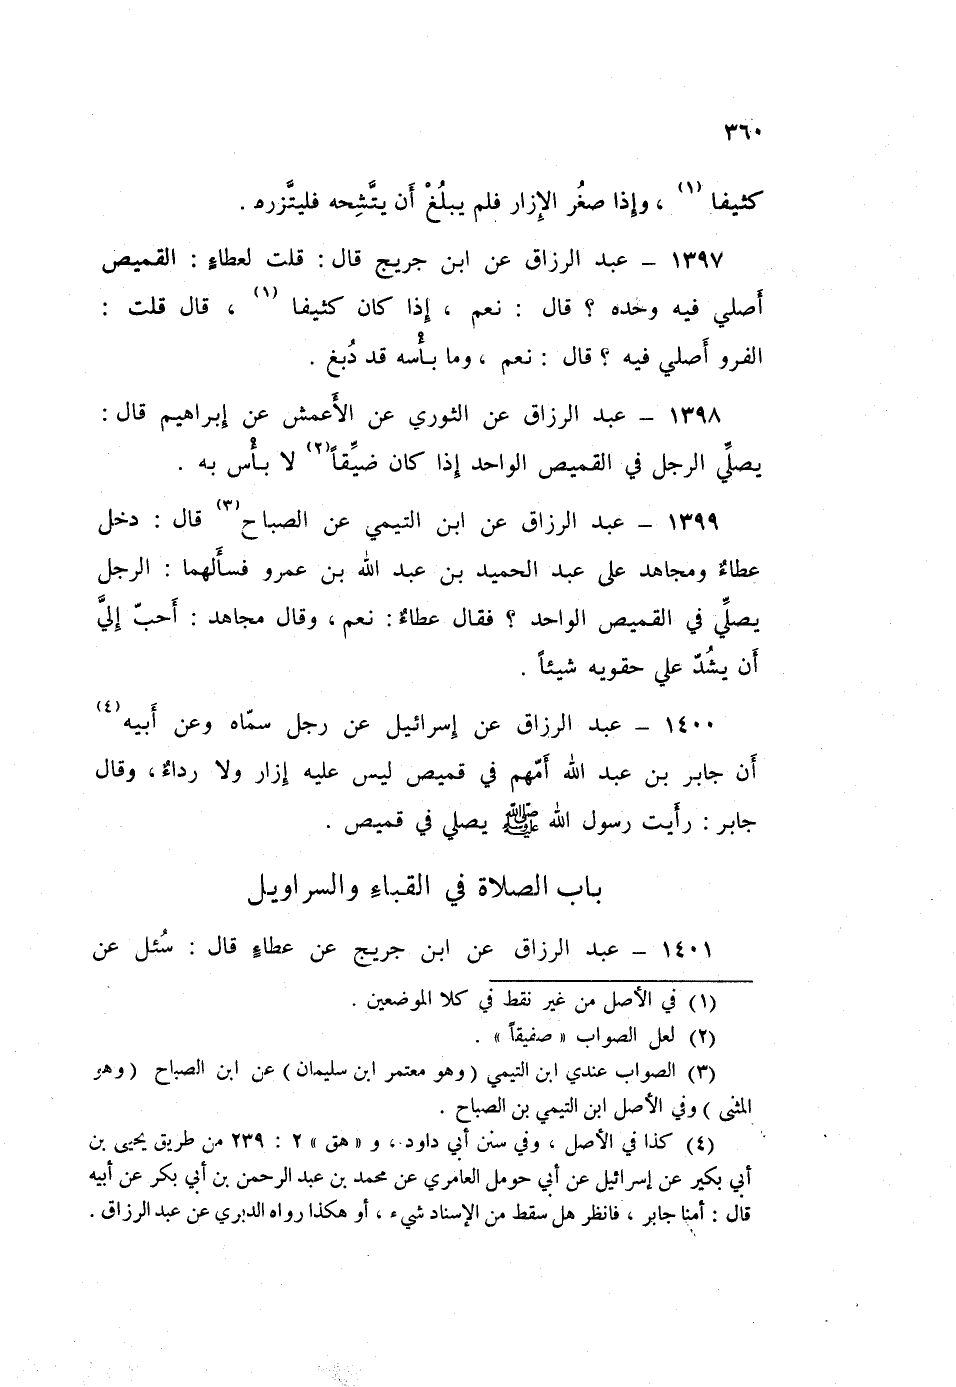 ٣٦٠
كثيفا (١) ، وإذا صغُر الإزار فلم يبلُغْ أَن يتَّشِحه فليتَّزره .
١٣٩٧ – عبد الرزاق عن ابن جريج قال : قلت لعطاءٍ : القميص
أَصلي فيه وحده ؟ قال : نعم ، إِذا كان كثيفا (١) ، قال قلت :
الفرو أَصلي فيه ؟ قال : نعم ، وما بأْسه قد دُبغ .
١٣٩٨ – عبد الرزاق عن الثوري عن الأَعمش عن إِبراهيم قال :
يصلِّي الرجل في القميص الواحد إِذا كان ضيِّقاً(٢) لا بأْس به .
١٣٩٩ – عبد الرزاق عن ابن التيمي عن الصباح(٣) قال : دخل
عطاءٌ ومجاهد على عبد الحميد بن عبد الله بن عمرو فسأَلهما : الرجل
يصلِّي في القميص الواحد ؟ فقال عطاءٌ : نعم ، وقال مجاهد : أَحبّ إِليَّ
أَن يشُدّ على حقويه شيئاً .
١٤٠٠ – عبد الرزاق عن إِسرائيل عن رجل سمّاه وعن أَبيه(٤)
أَن جابر بن عبد الله أَمّهم في قميص ليس عليه إِزار ولا رداءٌ ، وقال
جابر : رأَيت رسول الله ﷺ يصلي في قميص .
باب الصلاة في القباءِ والسراويل
١٤٠١ – عبد الرزاق عن ابن جريج عن عطاءٍ قال : سُئل عن
(١) في الأصل من غير نقط في كلا الموضعين .
(٢) لعل الصواب « صفيقاً » .
(٣) الصواب عندي ابن التيمي ( وهو معتمر ابن سليمان ) عن ابن الصباح ( وهو
المثنى ) وفي الأصل ابن التيمي بن الصباح .
(٤) كذا في الأصل ، وفي سنن أبي داود ، و « هق » ٢ : ٢٣٩ من طريق يحيى بن
أبي بكير عن إسرائيل عن أبي حومل العامري عن محمد بن عبد الرحمن بن أبي بكر عن أبيه
قال : أمنا جابر ، فانظر هل سقط من الإسناد شيء ، أو هكذا رواه الدبري عن عبد الرزاق .